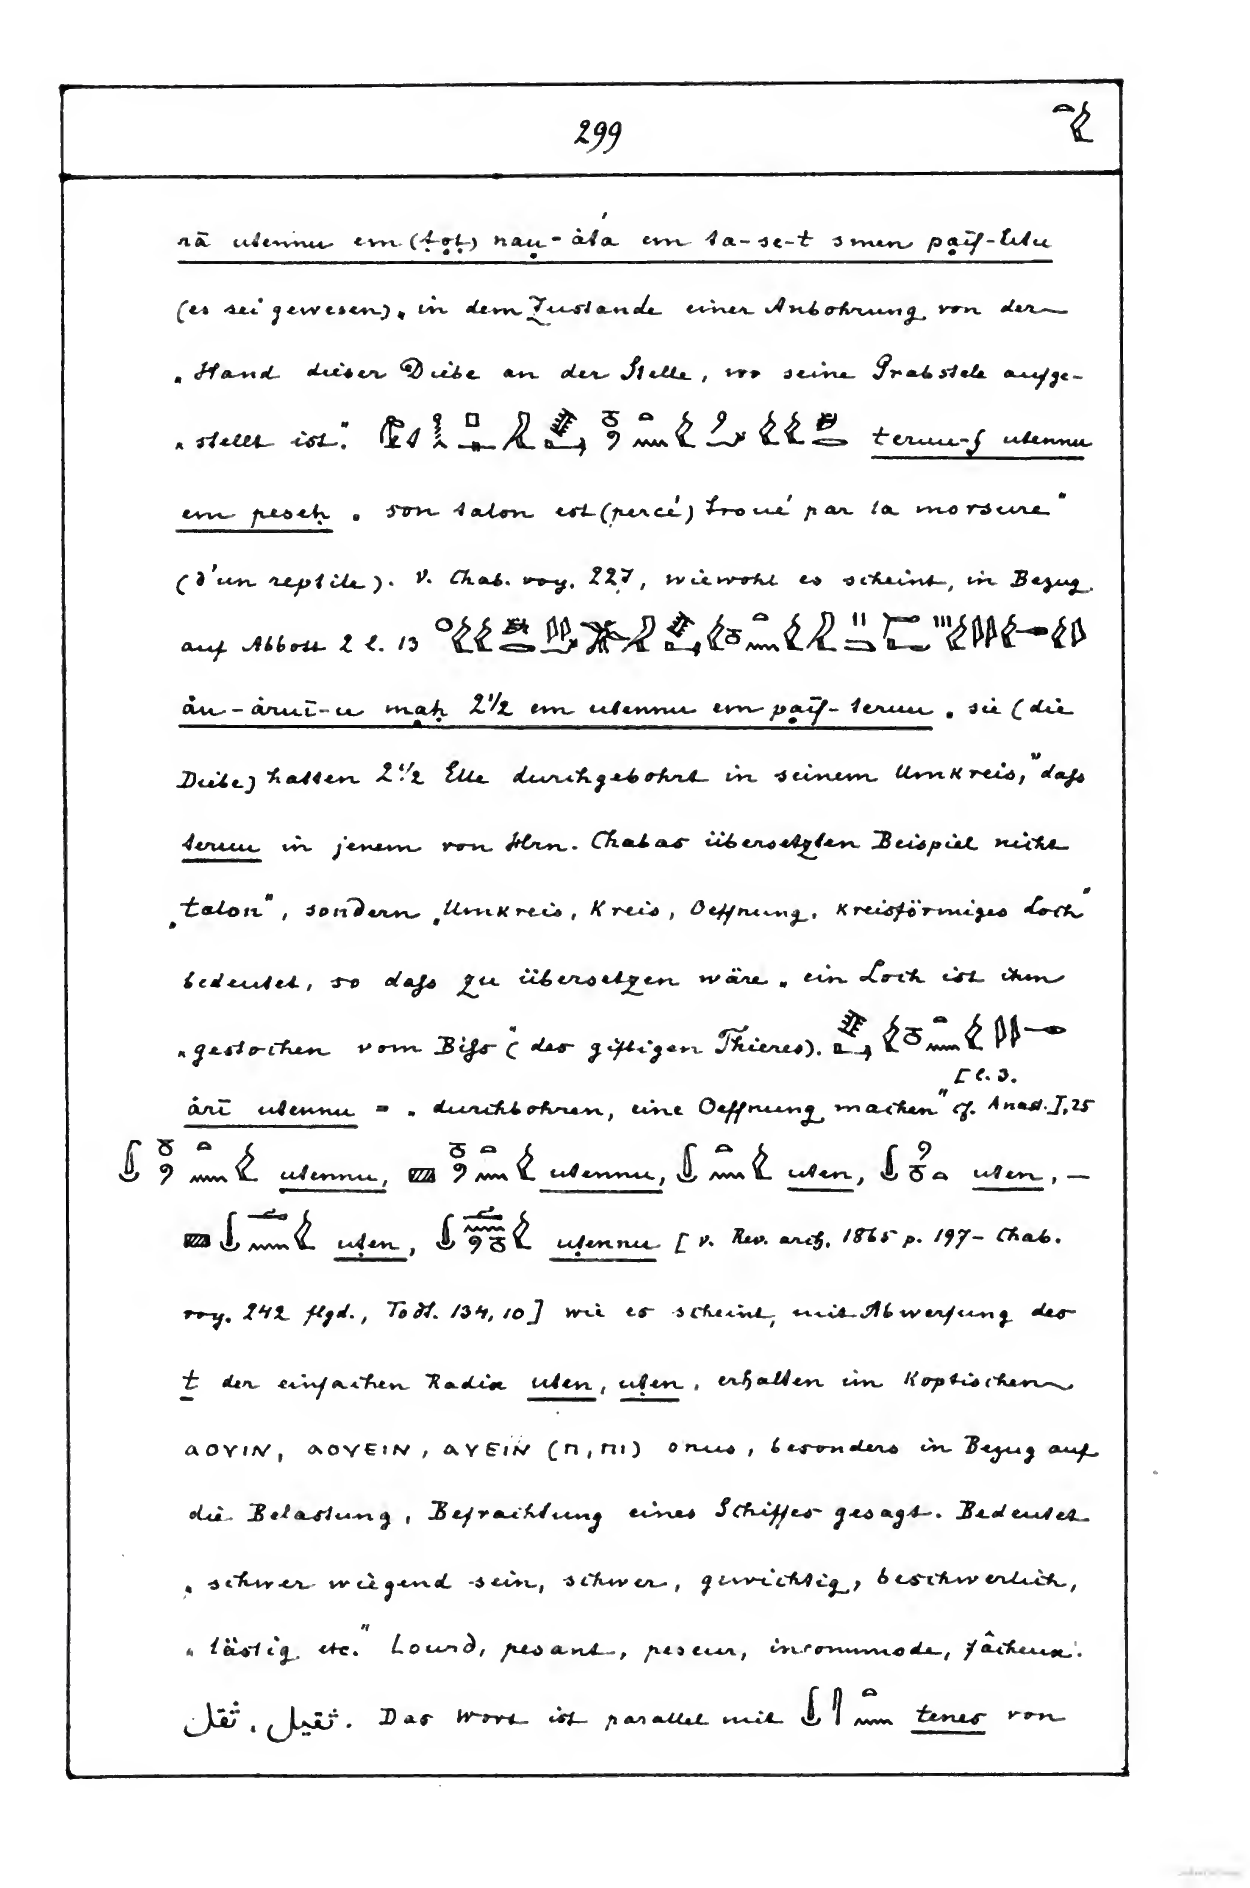 299
rā utennu em (ṭoṭ) nau-át́a em ta-se-t smen paīf-utu
(es sei gewesen) „in dem Zustande einer Anbohrung von der
„Hand dieser Diebe an der Stelle, wo seine Grabstele aufge-
„stellt ist." teruu-f utennu
em peseḥ „son talon est (percé) troué par la morsure"
(d'un reptile). v. Chab. voy. 227, wiewohl es scheint, in Bezug
auf Abbott 2 l. 13
àu-àruī-u maḥ 2 1/2 em utennu em paīf-teruu „sie (die
Diebe) hatten 2 1/2 Elle durchgebohrt in seinem Umkreis," daſs
teruu in jenem von Hrn. Chabas übersetzten Beispiel nicht
„talon", sondern „Umkreis, Kreis, Oeffnung, kreisförmiges Loch"
bedeutet, so daſs zu übersetzen wäre „ein Loch ist ihm
„gestochen vom Biſs" (des giftigen Thieres).
[l. 3.
àrī utennu = „durchbohren, eine Oeffnung machen" cf. Anast. I, 25
utennu, utennu, uten, uten, —
uṭen, uṭennu [v. Rev. arch. 1865 p. 197 – Chab.
voy. 242 flgd., Todt. 134, 10] wie es scheint, mit Abwerfung des
t der einfachen Radix uten, uṭen, erhalten im Koptischen
ⲁⲟⲩⲓⲛ, ⲁⲟⲩⲉⲓⲛ, ⲁⲩⲉⲓⲛ (ⲡ, ⲡⲓ) onus, besonders in Bezug auf
die Belastung, Befrachtung eines Schiffes gesagt. Bedeutet
„schwer wiegend sein, schwer, gewichtig, beschwerlich,
„lästig etc." Lourd, pesant, peseur, incommode, fâcheux.
ثقيل, ثقل. Das Wort ist parallel mit tenes von